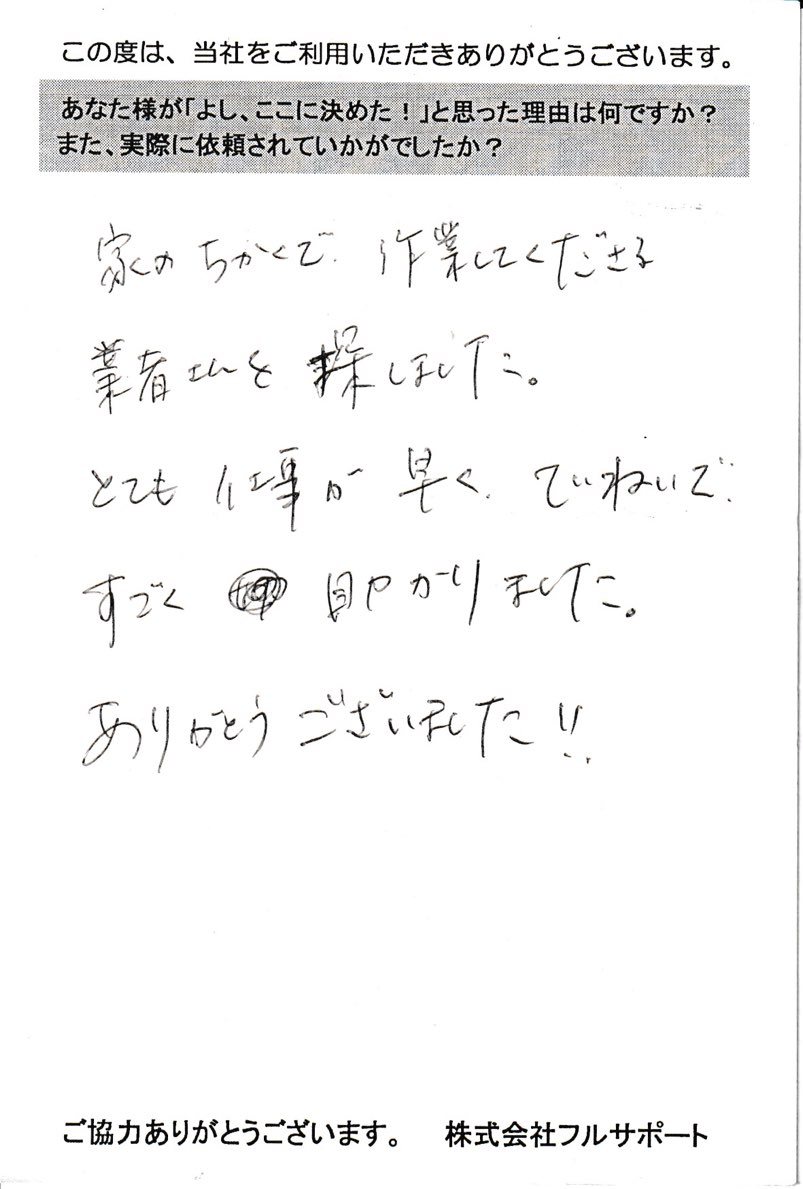 この度は、当社をご利用いただきありがとうございます。
あなた様が「よし、ここに決めた！」と思った理由は何ですか？
また、実際に依頼されていかがでしたか？
家のちかくで、作業してくださる
業者さんを探しました。
とても仕事が早く、ていねいで、
すごく助かりました。
ありがとうございました!!
ご協力ありがとうございます。 株式会社フルサポート